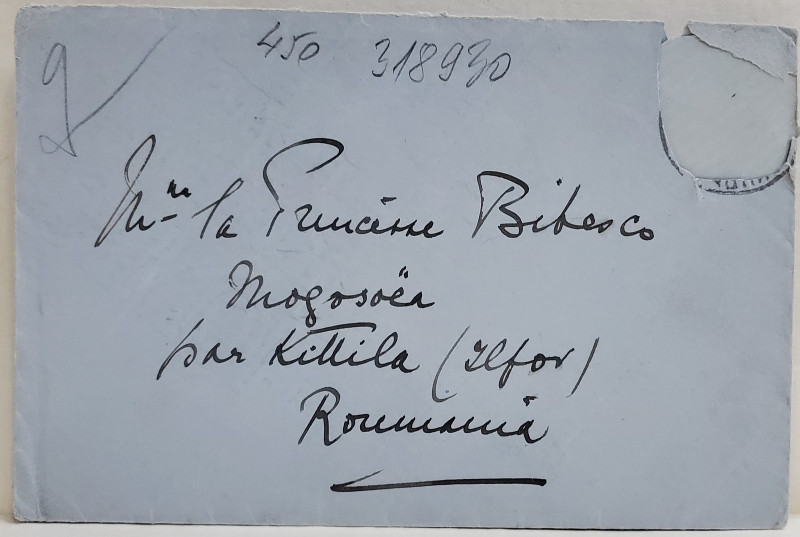 450 318930
Mme la Princesse Bibesco
Mogosoëa
par Kittila (Ilfov)
Roumania